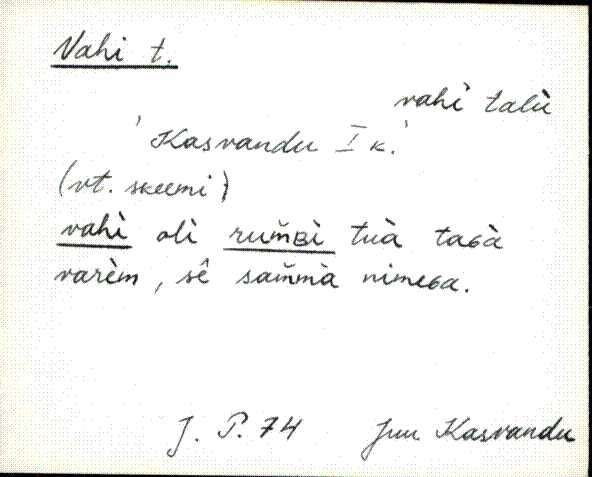 Vahi t.
vahì talù
'Kasvandu I k.'
(vt. skeemi)
vahì olì rum̆ʙì tuà taɢà
varèm, sê sam̆mà nimeɢa.
J. P. 74 Juu Kasvandu